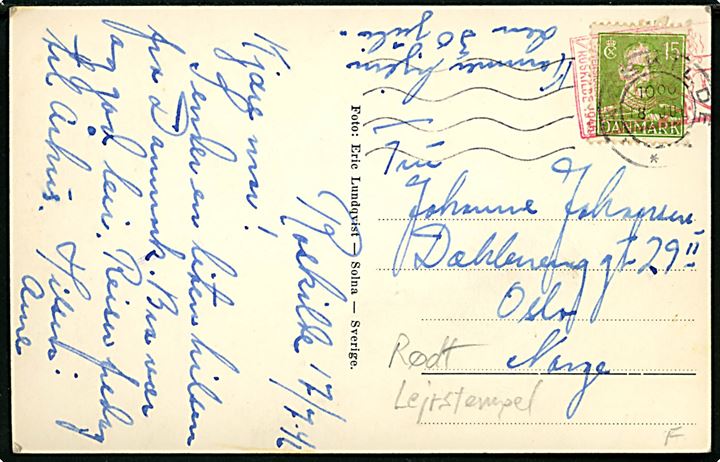 Roskilde 17/7.46
Kjære mor!
Sender en liten hilsen
fra Danmark. Bra vær
og god leir. Reiser fredag
til Århus. Hilsen
Arne
Kommer hjem
den 30 juli.
Foto: Eric Lundqvist — Solna — Sverige.
15
DANMARK
ROSKILDE
Fru
Johanne Johansen
Dælenenggt. 29 II
Oslo
Norge
Rødt
Lejrstempel
F